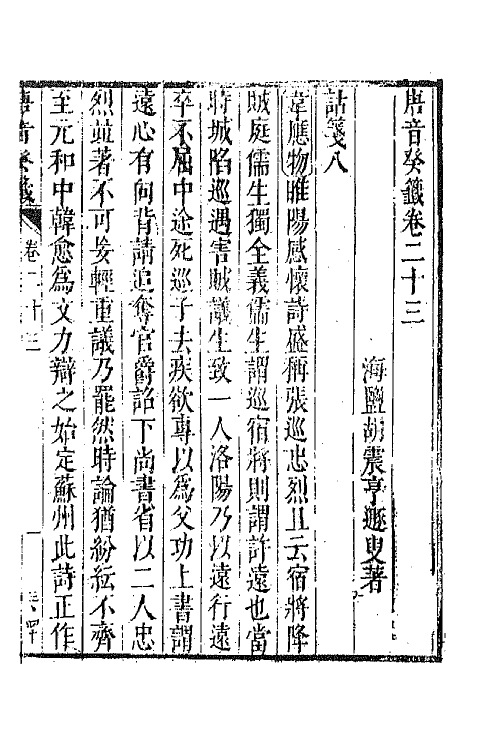 唐音癸籤卷二十三
海鹽胡震亨遯叟著
詁箋八
韋應物睢陽感懷詩盛稱張巡忠烈且云宿將降
賊庭儒生獨全義儒生謂巡宿將則謂許遠也當
時城陷巡遇害賊議生致一人洛陽乃以遠行遠
卒不屈中途死巡子去疾欲專以為父功上書謂
遠心有向背請追奪官爵詔下尚書省以二人忠
烈並著不可妄輕重議乃罷然時論猶紛紜不齊
至元和中韓愈為文力辯之始定蘇州此詩正作
唐音癸籤
卷二十三
一